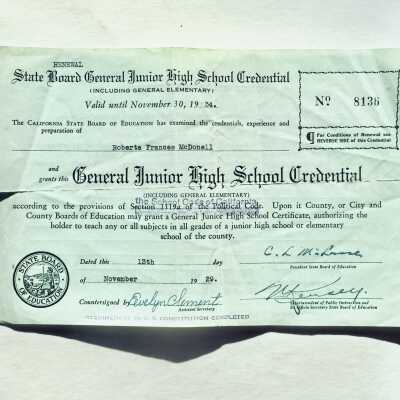 RENEWAL
State Board General Junior High School Credential
(INCLUDING GENERAL ELEMENTARY)
Valid until November 30, 19 34.
No 8136
¶ For Conditions of Renewal see
REVERSE SIDE of this Credential
The CALIFORNIA STATE BOARD OF EDUCATION has examined the credentials, experience and
preparation of
Roberta Frances McDonell
and
grants this General Junior High School Credential
(INCLUDING GENERAL ELEMENTARY)
according to the provisions of Section 1519a of the Political Code. Upon it County, or City and
County Boards of Education may grant a General Junior High School Certificate, authorizing the
holder to teach any or all subjects in all grades of a junior high school or elementary
school of the county.
STATE BOARD
OF EDUCATION
Dated this 13th day
of November 19 29.
President State Board of Education
Countersigned by Evelyn Clement
Assistant Secretary
Superintendent of Public Instruction and
Secretary State Board of Education
REQUIREMENT IN U. S. CONSTITUTION COMPLETED